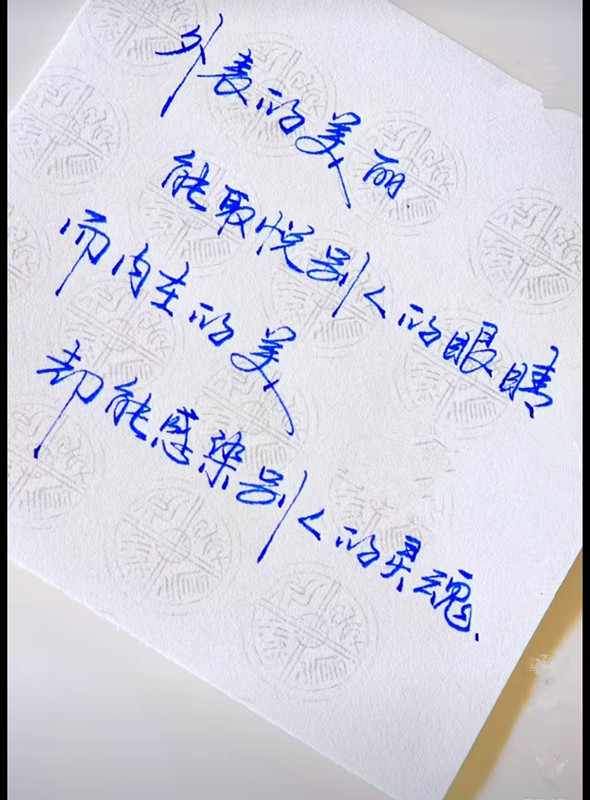 外表的美丽
能取悦别人的眼睛
而内在的美
却能感染别人的灵魂、